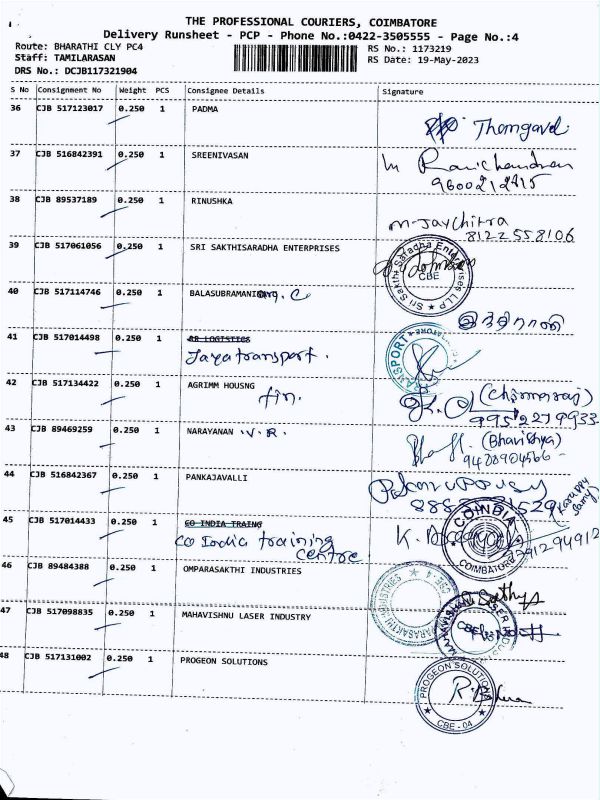 THE PROFESSIONAL COURIERS, COIMBATORE
Delivery Runsheet - PCP - Phone No.:0422-3505555 - Page No.:4
Route: BHARATHI CLY PC4 RS No.: 1173219
Staff: TAMILARASAN RS Date: 19-May-2023
DRS No.: DCJB117321904
S No Consignment No Weight PCS Consignee Details Signature
36 CJB 517123017 0.250 1 PADMA
Thomgavel
37 CJB 516842391 0.250 1 SREENIVASAN
Ravichandran
9600212415
38 CJB 89537189 0.250 1 RINUSHKA
M-Jaychitra
8122558106
39 CJB 517061056 0.250 1 SRI SAKTHISARADHA ENTERPRISES
Sri Sakthi Saradha Enterprises LLP
CBE
40 CJB 517114746 0.250 1 BALASUBRAMANI C
இந்திராணி
41 CJB 517014498 0.250 1 LOGISTICS
Jaya transport. TRANSPORT
42 CJB 517134422 0.250 1 AGRIMM HOUSNG
fin. (Chinnaraj)
9952279933
43 CJB 89469259 0.250 1 NARAYANAN .V.R.
(Bhavishya)
9488904566
44 CJB 516842367 0.250 1 PANKAJAVALLI
45 CJB 517014433 0.250 1 CO INDIA TRAING
CO India training
centre
COINDIA
COIMBATORE
46 CJB 89484388 0.250 1 OMPARASAKTHI INDUSTRIES
47 CJB 517098835 0.250 1 MAHAVISHNU LASER INDUSTRY
48 CJB 517131002 0.250 1 PROGEON SOLUTIONS
PROGEON SOLUTIONS
CBE - 04